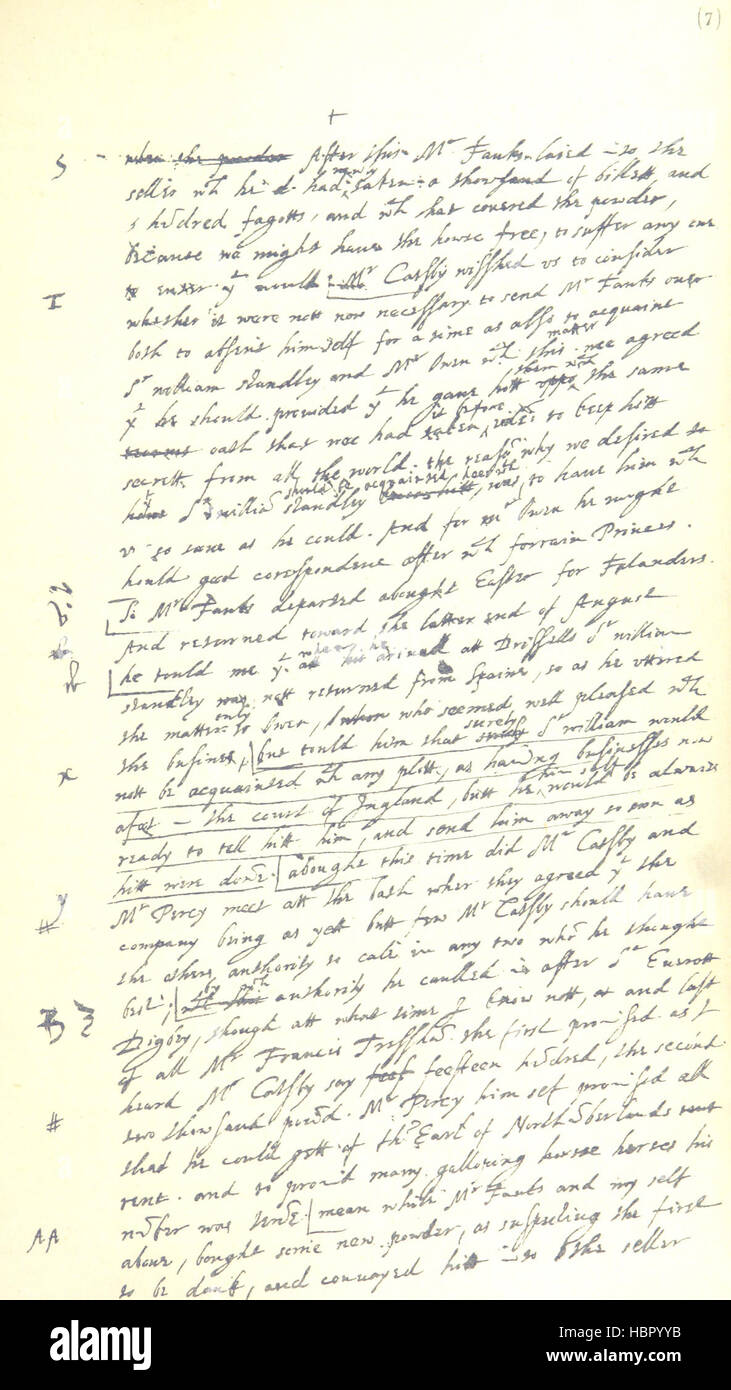 (7)
+
S when the powder After this Mr Fauks laied into the
seller wch hee had new taken a thousand of billetts and
5 hūdred fagotts, and wth that covered the powder,
because we might have the house free, to suffer any one
to enter yt would Mr Catsby wisshed us to consider
I whether it were nott now necessary to send Mr Fauks over
both to absent himself for a time as allso to acquaint
matter
Sr william standley and Mr Owen wth this we agreed
them wth
yt he should provided yt he gave hitt the same
is before
oath that wee had taken, to keep hitt
secrett from all the world. the reasō why we desired to
should be acquainted herewth
Sr williā standley was to have him wth
us so sone as he could. And for mr Owen he might
hould good correspondence after wth forrain Princes.
So Mr Fauks departed abought Easter for Flanders.
And returned toward the latter end of August
when he
he tould me yt arived att Brissells Sr william
standley was nott returned from Spaine, so as he uttered
only
the matter to Owen, who seemed well pleased wth
surely
the busines, but tould him that Sr william would
x nott be acquainted wth any plott, as having businesses now
him self
afoot in the court of Ingland, butt he would be alwaies
ready to tell hitt him, and send him away so soon as
hitt were donē. abought this time did Mr Catsby and
# Mr Percy meet att the bath wher they agreed yt the
company being as yett butt few Mr Catsby should have
the others authority to call in any two whō he thought
best; by wch authority he caulled in after Sr Everott
Digby, though att what time I know nott, and last
of all Mr Francis Tresshā. the first promised as I
heard Mr Catsby say feefteen hūdred, the second
# two thousand powd. Mr Percy him self promised all
that he could gett of the Earl of Northūberlands rent
rent. and to provid many galloping horses his
nūber was tenē. mean while Mr Fauks and my self
AA alone, bought some new powder, as suspecting the first
to be dank, and conveyed hitt into the seller
alamy
alamy stock photo
HBPYYB
www.alamy.com